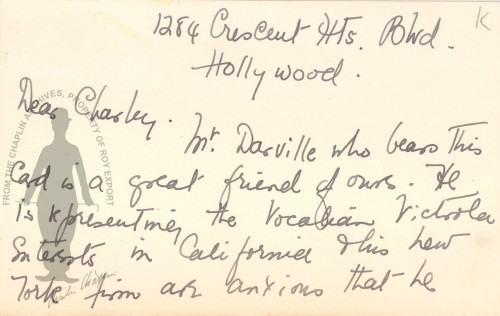 K
1284 Crescent Hts. Blvd.
Hollywood.
Dear Charley.
Mr. Darville who bears this
Card is a great friend of ours. He
is representing the Vocalian Victrola
Interests in California & his New
York firm are anxious that he
FROM THE CHAPLIN ARCHIVES, PROPERTY OF ROY EXPORT